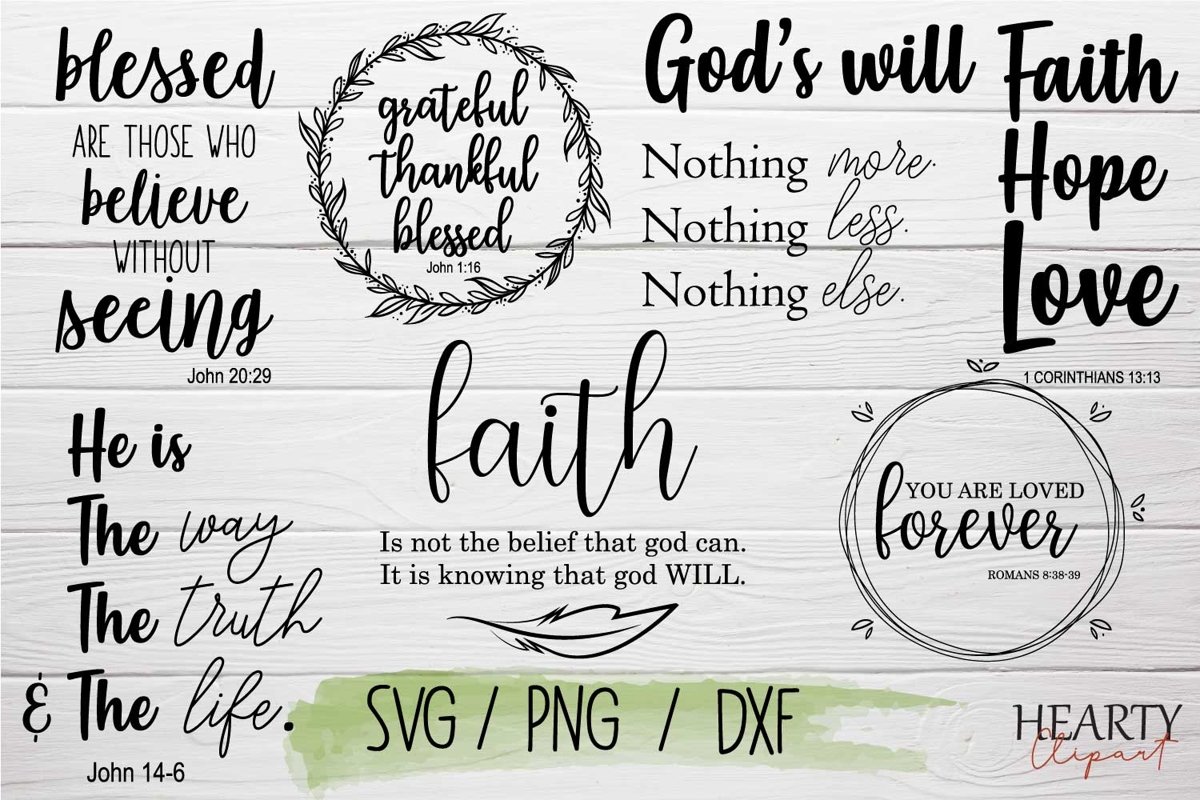 blessed
ARE THOSE WHO
believe
WITHOUT
seeing
John 20:29
grateful
thankful
blessed
John 1:16
God's will
Nothing more.
Nothing less.
Nothing else.
Faith
Hope
Love
1 CORINTHIANS 13:13
He is
The way
The truth
& The life.
John 14-6
faith
Is not the belief that god can.
It is knowing that god WILL.
YOU ARE LOVED
forever
ROMANS 8:38-39
SVG / PNG / DXF
HEARTY
Clipart